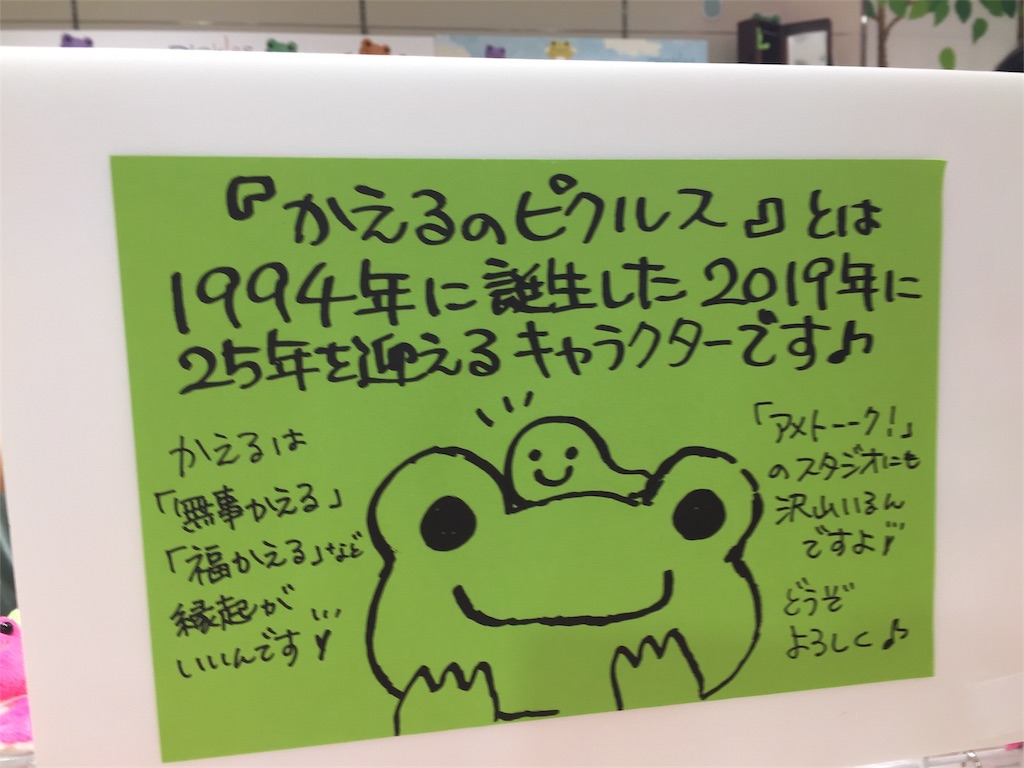 『かえるのピクルス』とは
1994年に誕生した2019年に
25年を迎えるキャラクターです♪
かえるは
「無事かえる」
「福かえる」など
縁起が
いいんです
「アメトーーク!」
のスタジオにも
沢山いるん
ですよ
どうぞ
よろしく♪